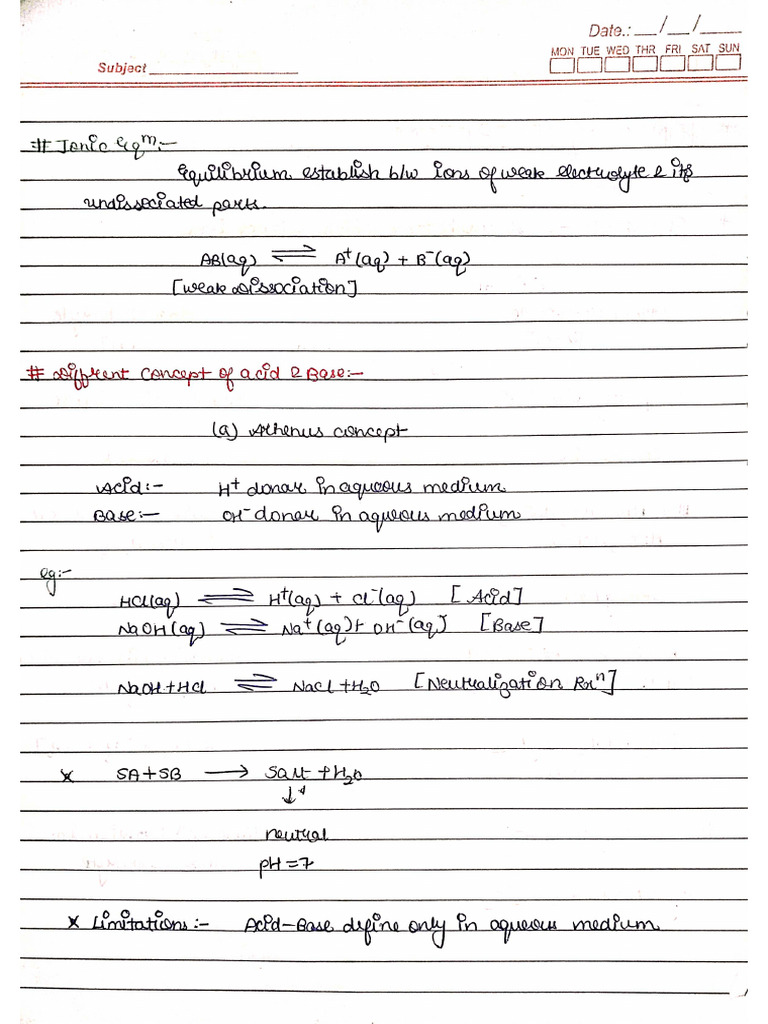 Date.: __/__/____
MON TUE WED THR FRI SAT SUN
Subject
# Ionic Eqm:-
Equilibrium establish b/w ions of weak electrolyte & its
undissociated parts.
AB(aq) ⇌ A⁺(aq) + B⁻(aq)
[weak Dissociation]
# Diffrent concept of acid & Base:-
(a) Arhenus concept
Acid:- H⁺ donar in aqueous medium
Base:- OH⁻ donar in aqueous medium
eg:-
HCl(aq) ⇌ H⁺(aq) + Cl⁻(aq) [Acid]
NaOH(aq) ⇌ Na⁺(aq) + OH⁻(aq) [Base]
NaOH + HCl ⇌ NaCl + H₂O [Neutralization Rxⁿ]
* SA + SB → Salt + H₂O
↓
neutral
pH = 7
* Limitations:- Acid-Base define only in aqueous medium